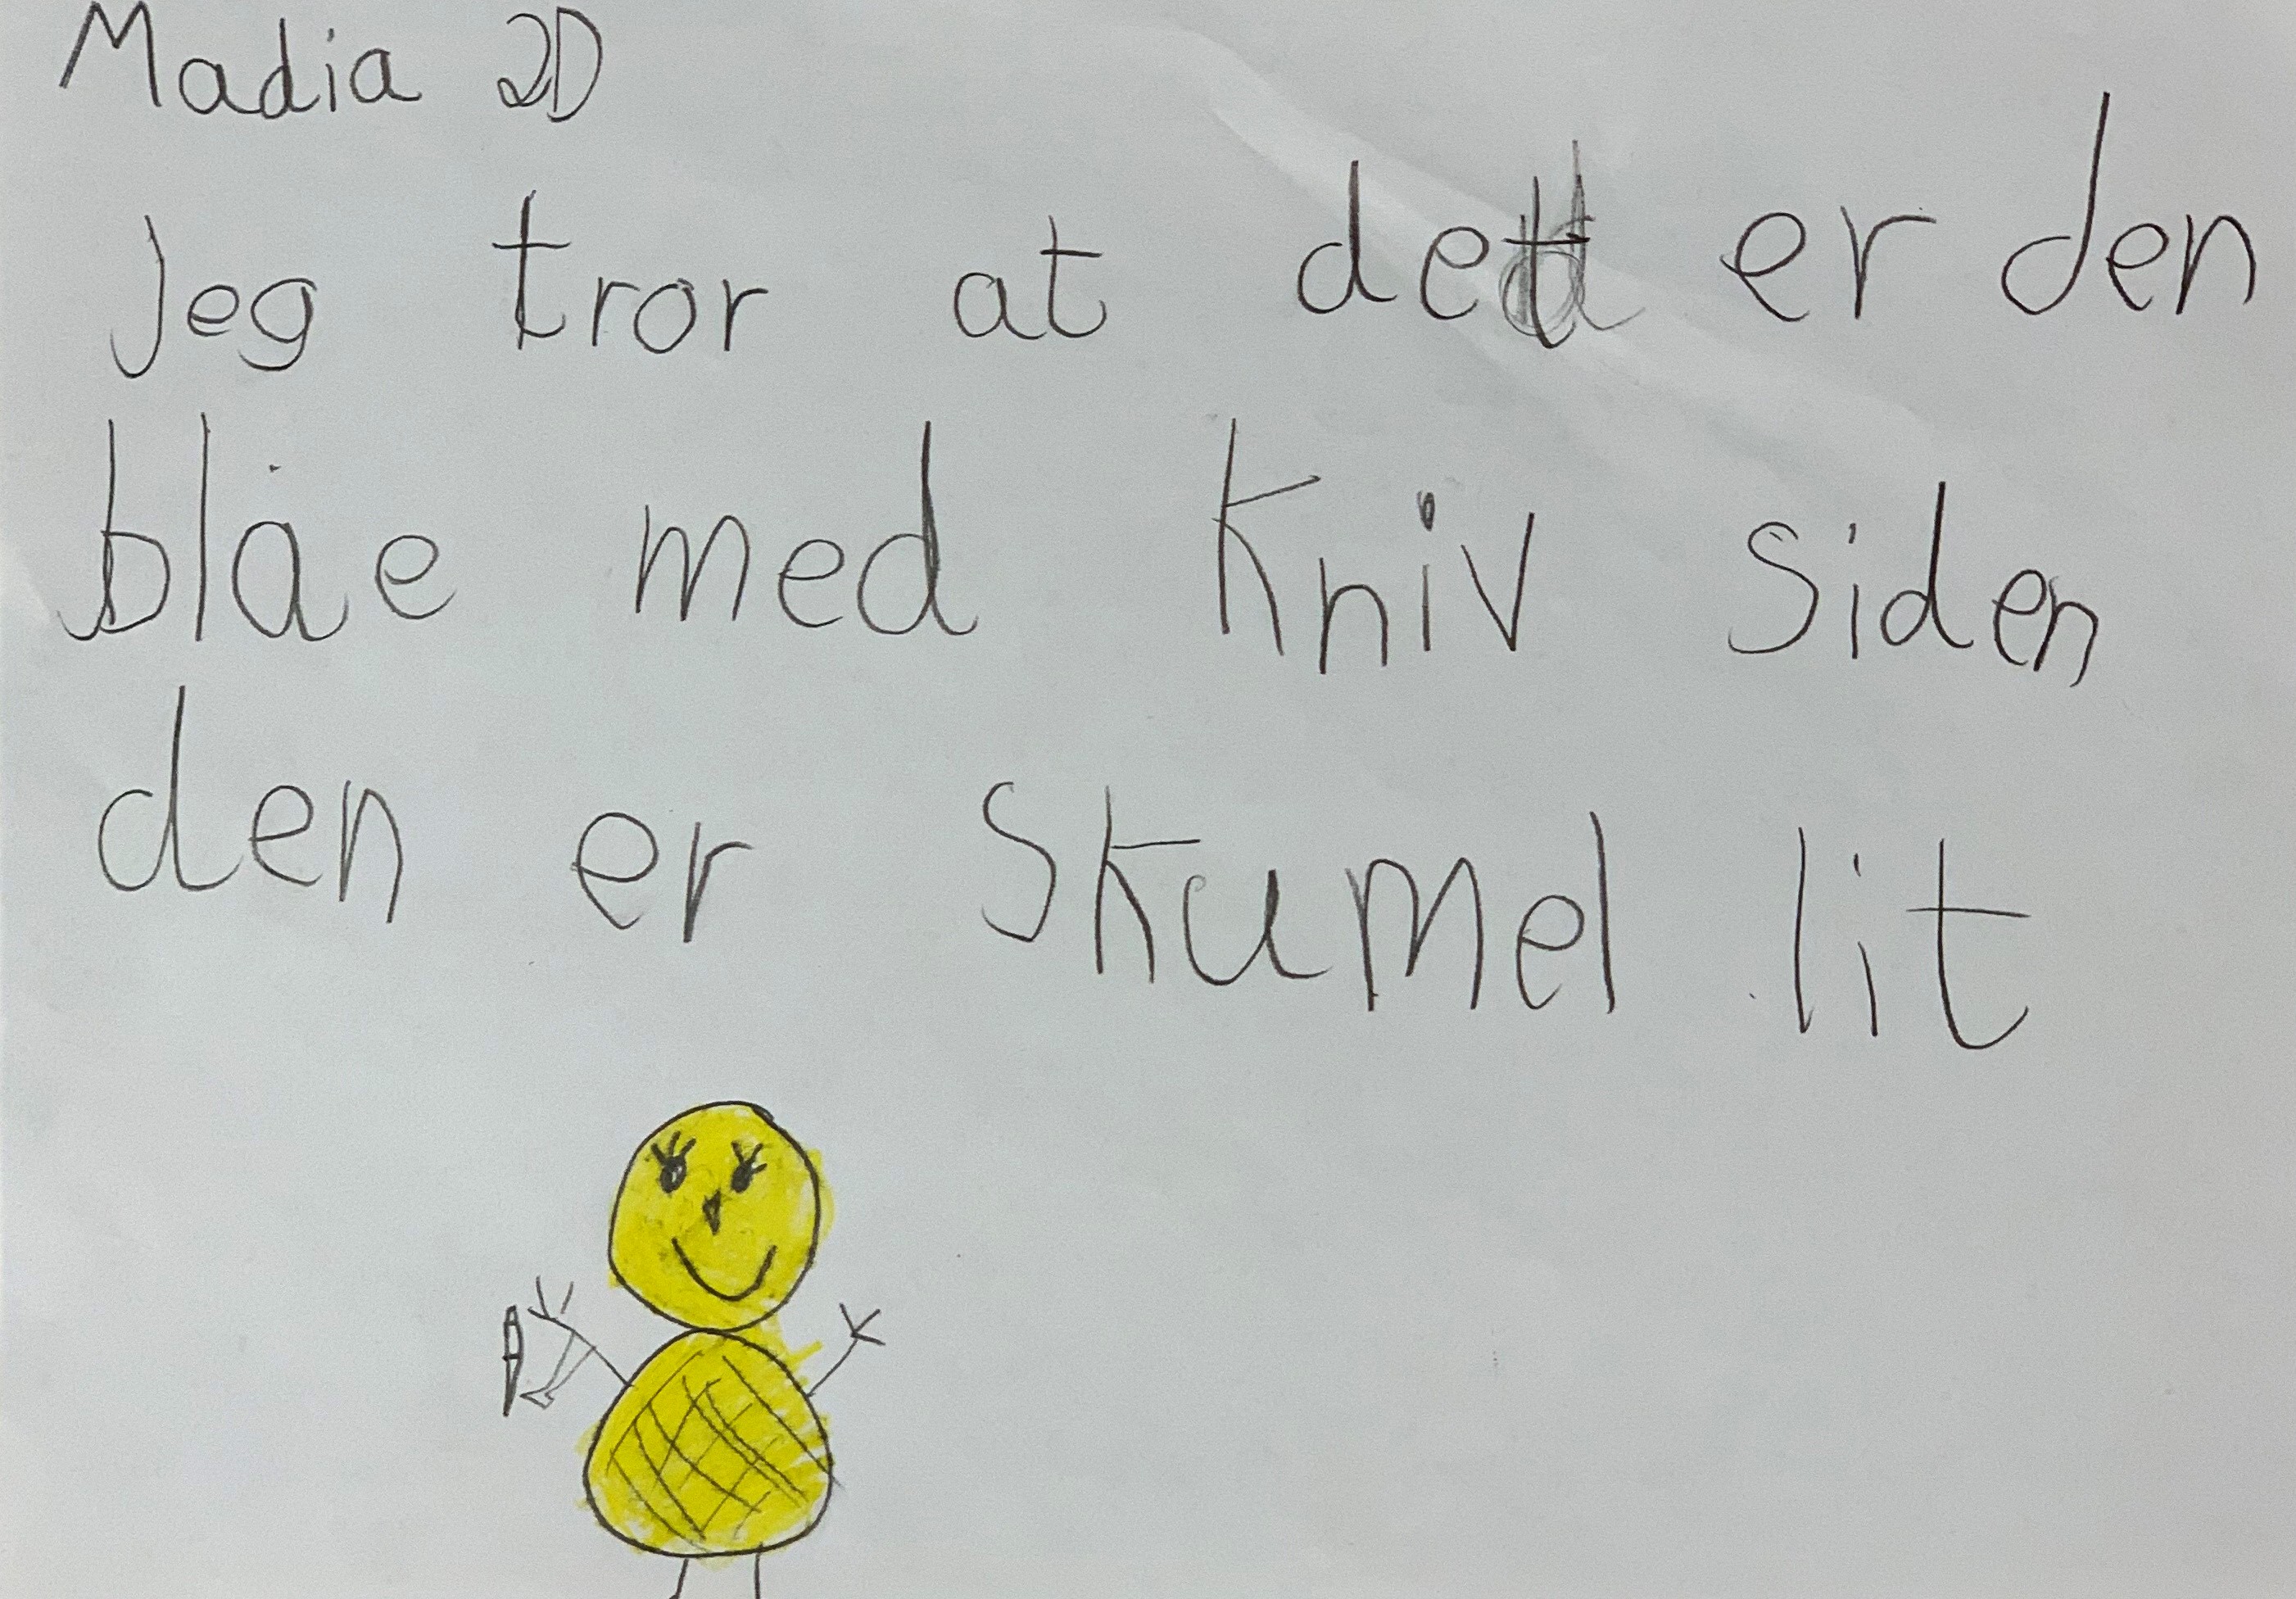 Madia 2D
Jeg tror at det er den
blåe med kniv siden
den er skumel lit